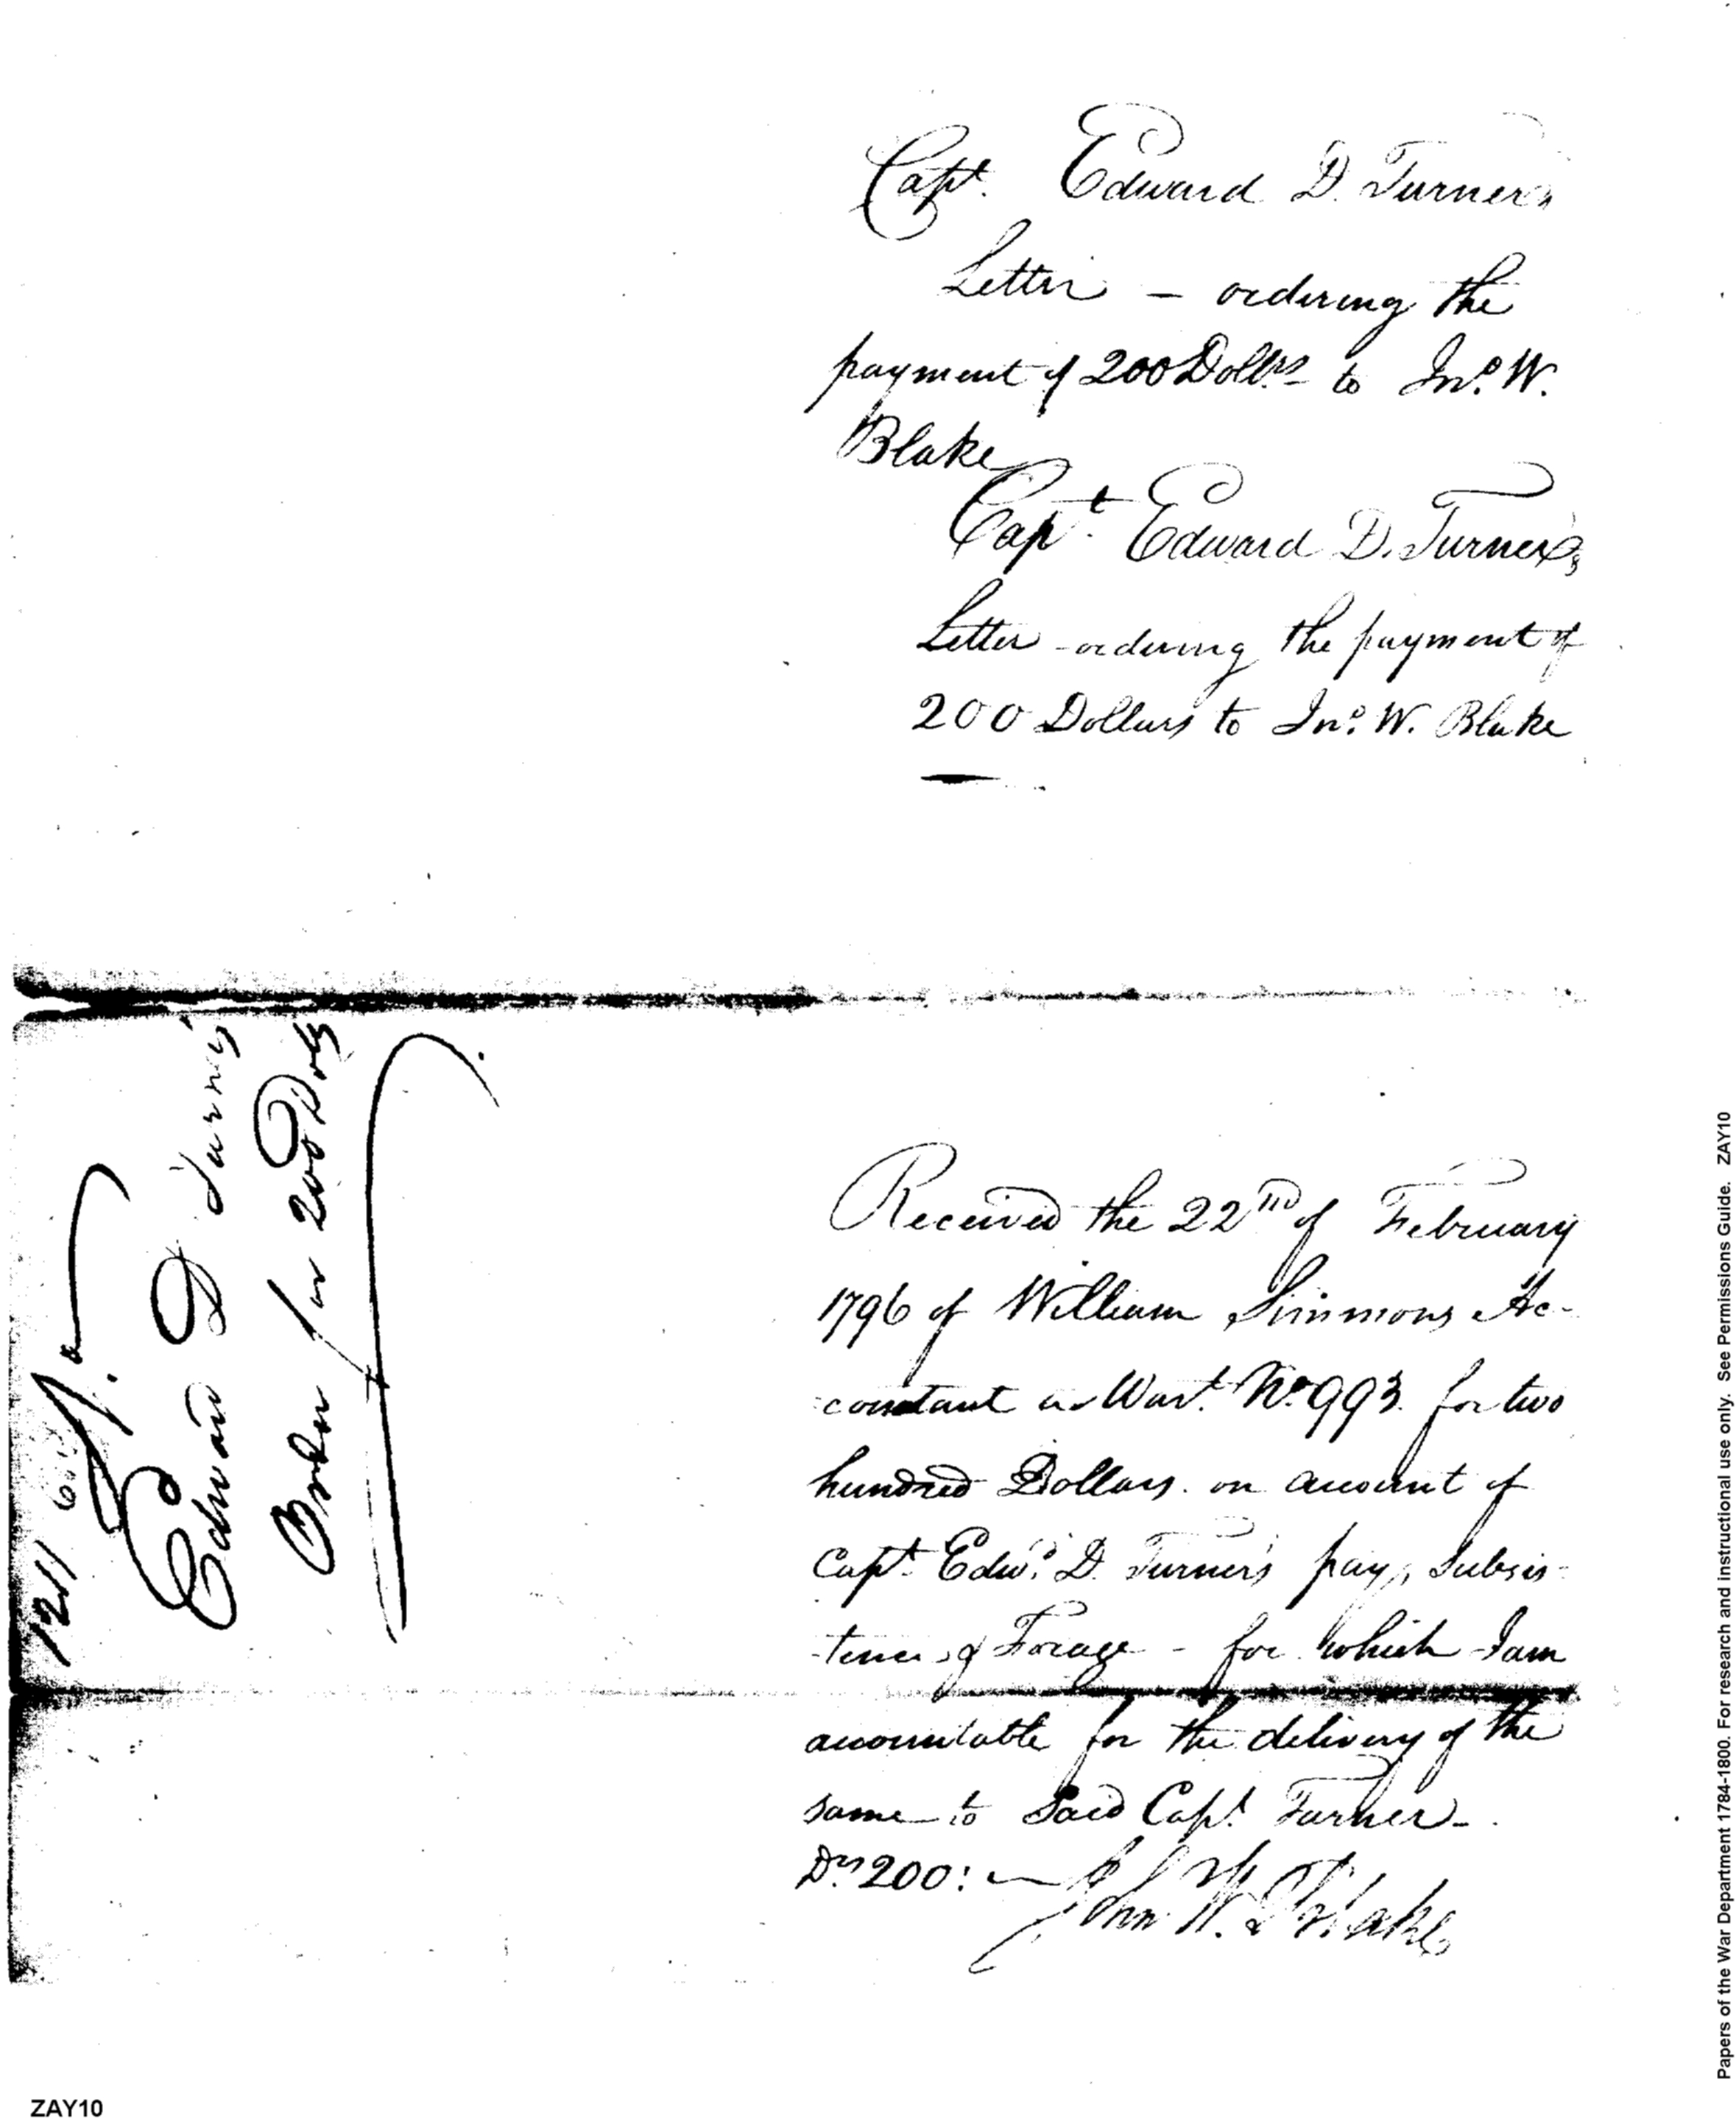 Capt. Edward D. Turner's
Letter – ordering the
payment of 200 Dollrs to Jno. W.
Blake
Capt. Edward D. Turner's
Letter – ordering the payment of
200 Dollars to Jno. W. Blake
Edward D Turner's
Order for 200 Dolls
Received the 22nd of February
1796 of William Simmons Ac-
countant a Wart. No. 993. for two
hundred Dollars. on account of
Capt. Edwd. D. Turner's pay, Subsis-
tence, & Forage – for which I am
accountable for the delivery of the
same to Said Capt. Turner –.
Drs 200: –
John W. Blake
Papers of the War Department 1784-1800. For research and instructional use only. See Permissions Guide. ZAY10
ZAY10